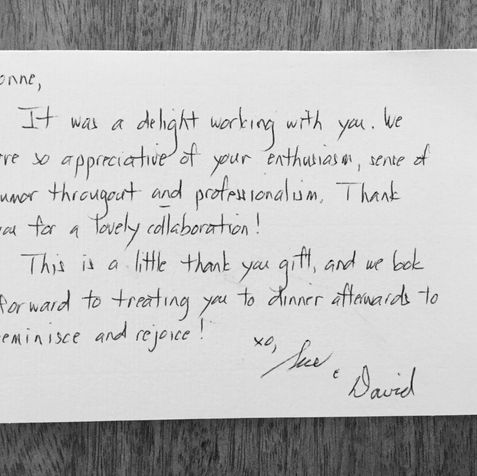 onne,
It was a delight working with you. We
re so appreciative of your enthusiasm, sense of
umor througout and professionalism. Thank
ou for a lovely collaboration!
This is a little thank you gift, and we look
forward to treating you to dinner afterwards to
eminisce and rejoice!
xo, Sue
& David